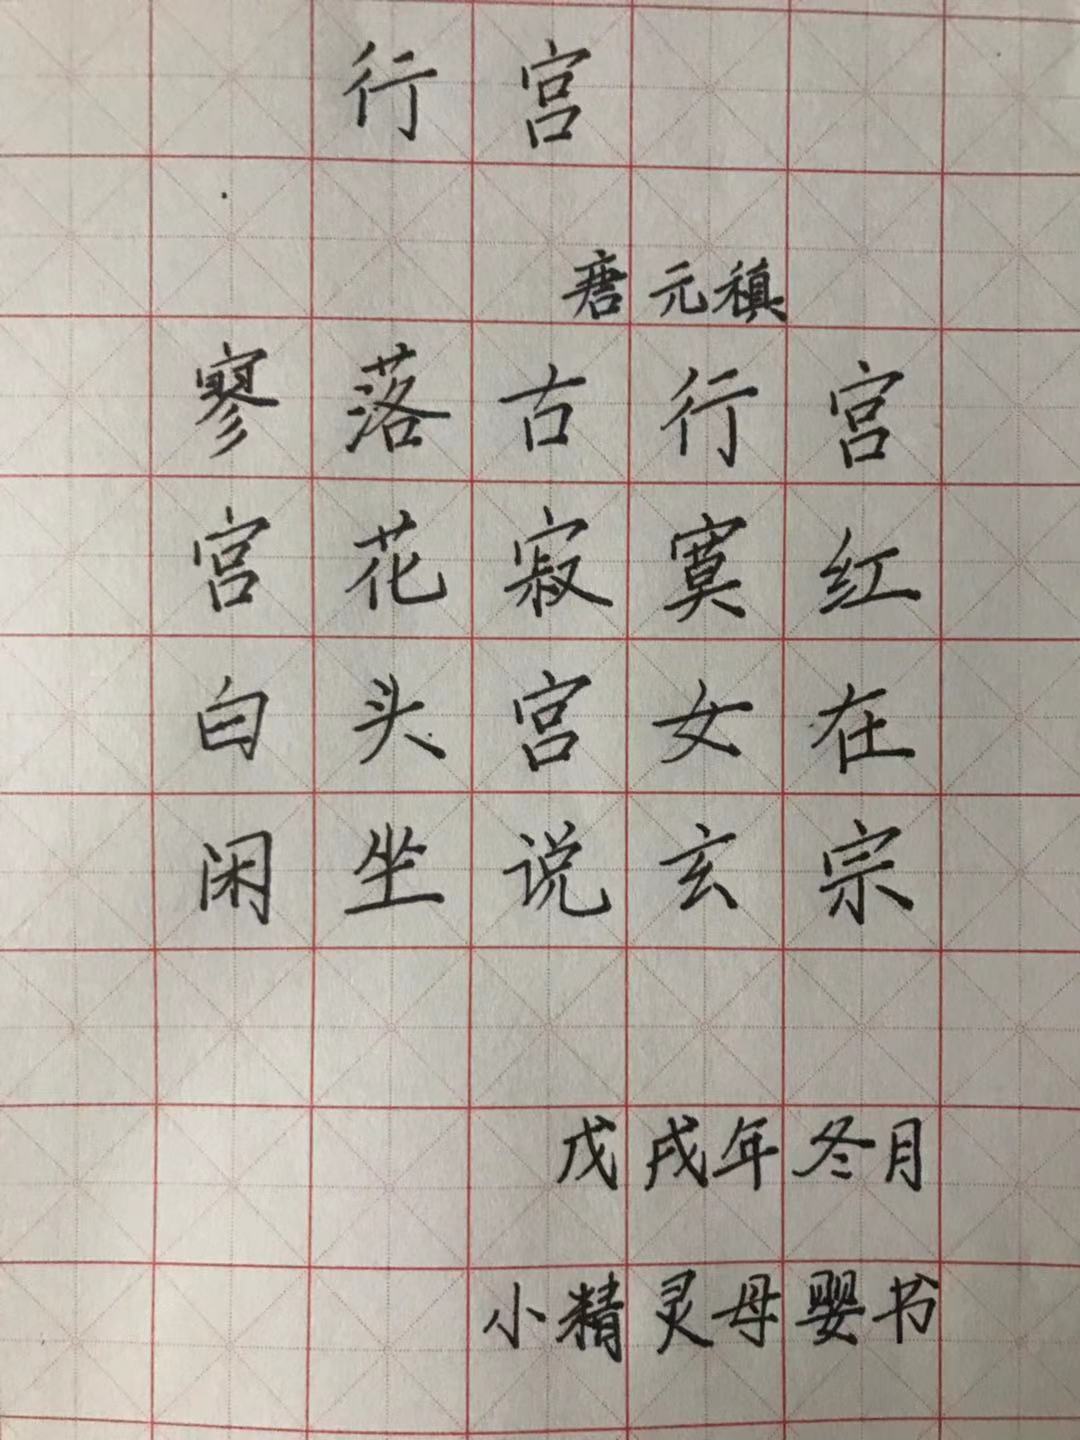 行宫
唐 元稹
寥落古行宫
宫花寂寞红
白头宫女在
闲坐说玄宗
戊戌年冬月
小精灵母婴书